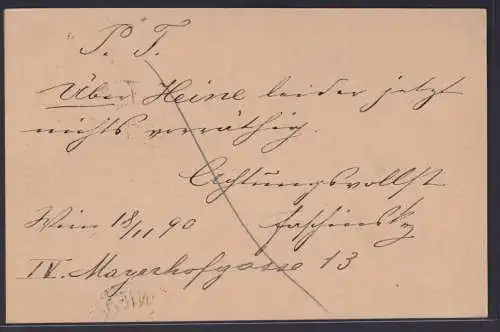 P. T.
Über Heine leider jetzt
nichts vorräthig.
Achtungsvollst
Wien 18/11 90
IV. Mayerhofgasse 13